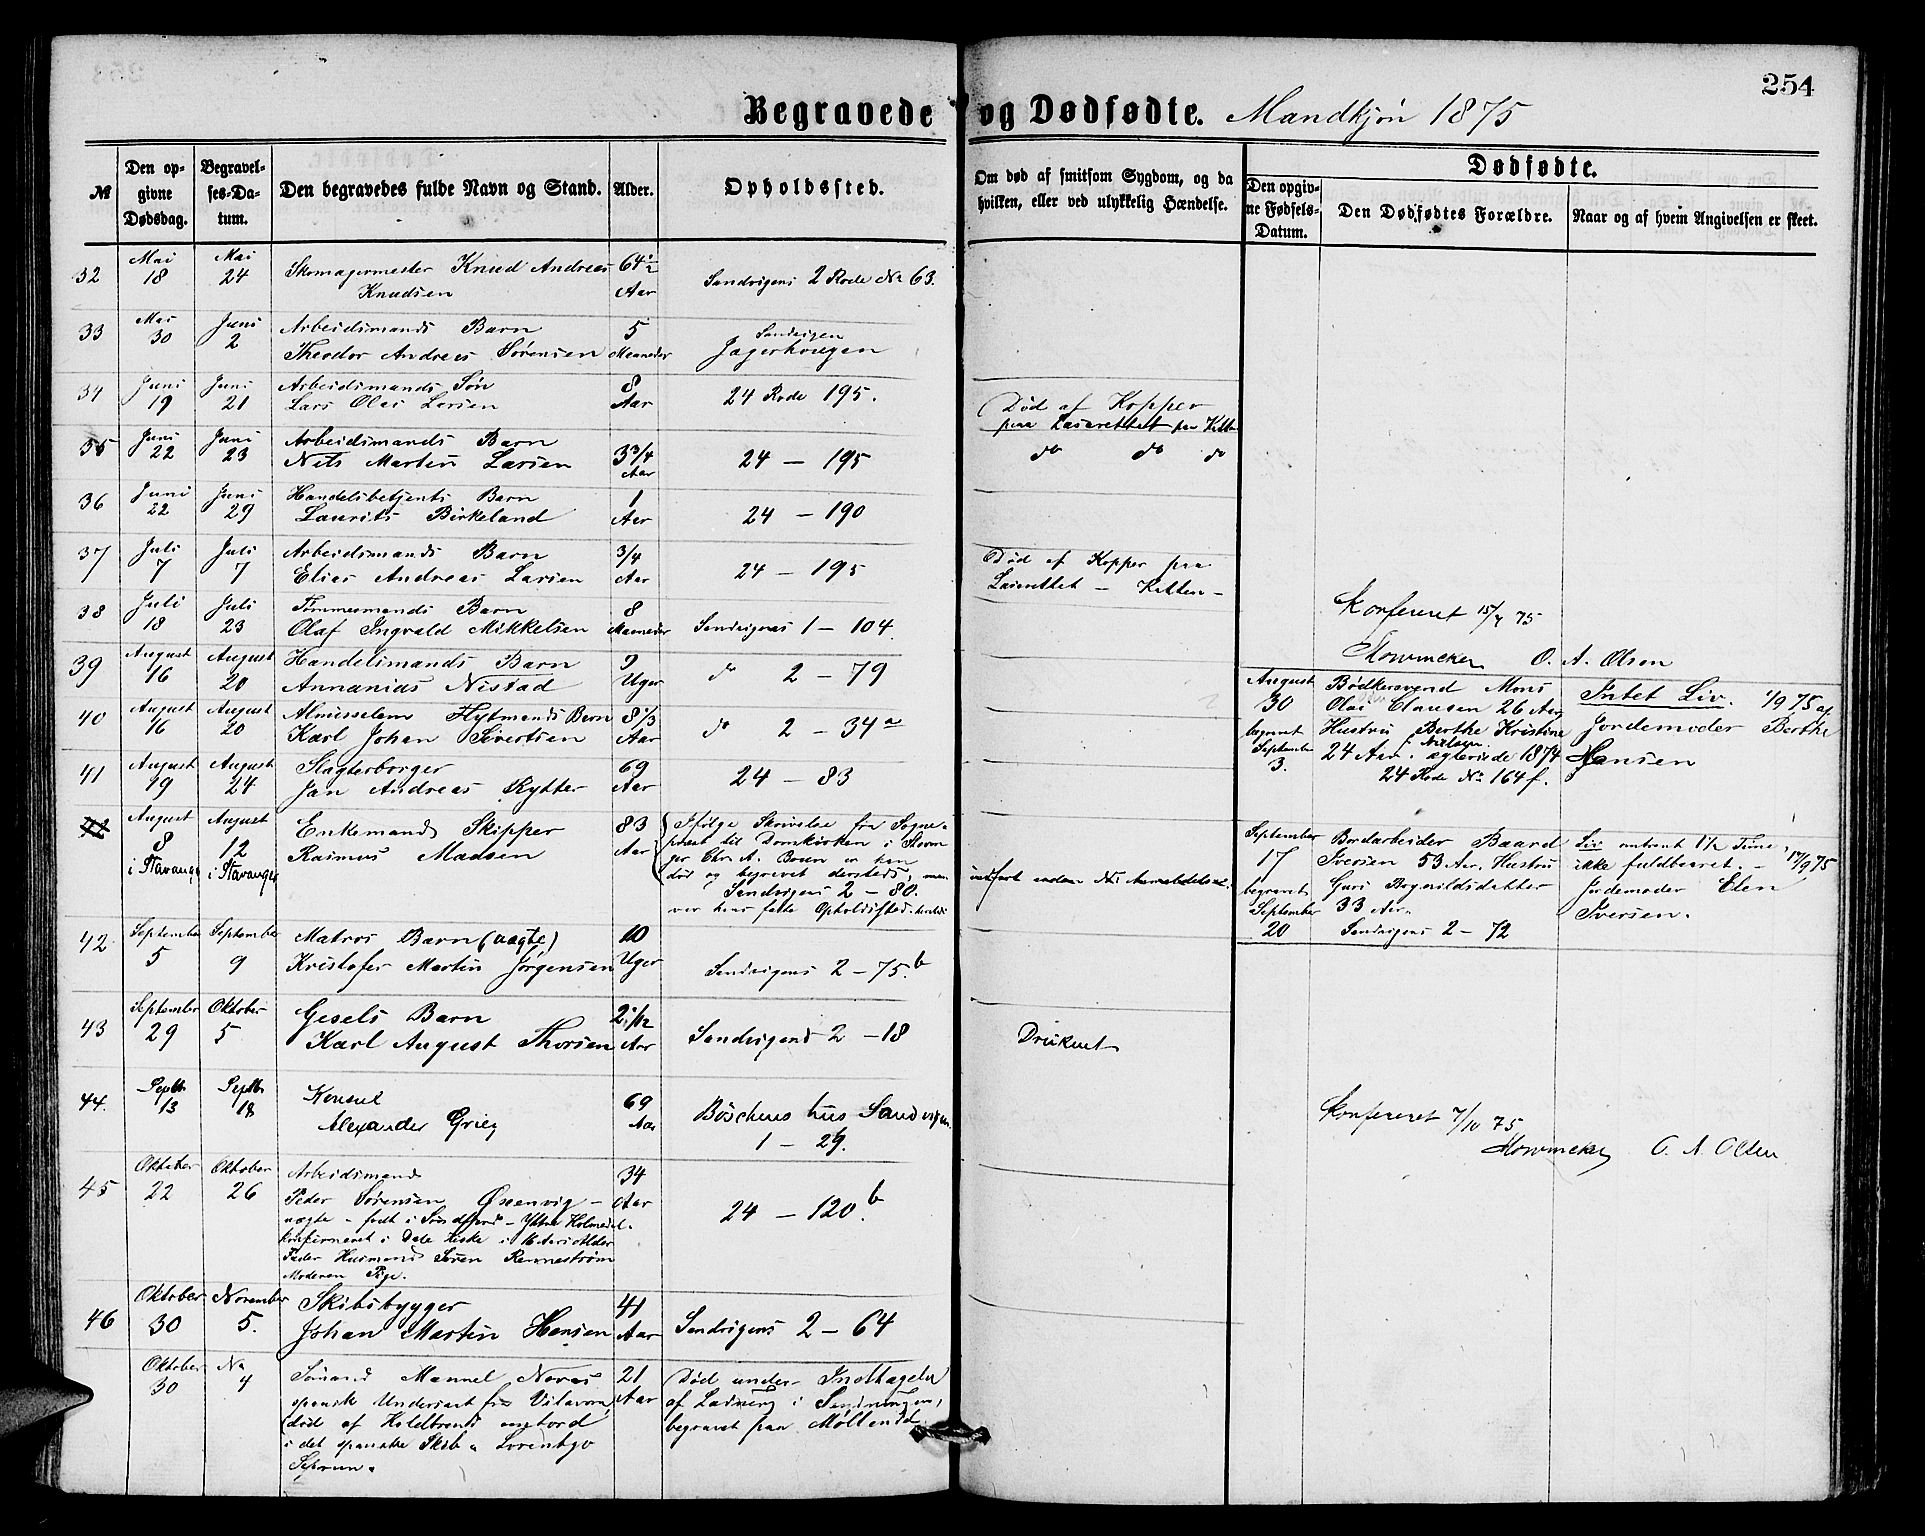 254
Begravede og Dødfødte. Mandkjøn 1875
№
Den opgivne Dødsdag.
Begravelses-Datum.
Den begravedes fulde Navn og Stand.
Alder.
Opholdssted.
Om død af smitsom Sygdom, og da hvilken, eller ved ulykkelig Hændelse.
Dødfødte.
Den opgivne Fødsels-Datum.
Den Dødfødtes Forældre.
Naar og af hvem Angivelsen er skeet.
32 Mai 18 Mai 24 Skomagermester Knud Andreas 64½
Knudsen Aar Sandvigens 2 Rode No 63.
33 Mai 30 Juni 2 Arbeidsmands Barn 5 Sandvigen
Theodor Andreas Sørensen Maaneder Jægerhougen
34 Juni 19 Juni 21 Arbeidsmands Søn 8 24 Rode 195.
Lars Olai Larsen Aar
Død af Kopper
paa Lasarettet paa Kalt
35 Juni 22 Juni 23 Arbeidsmands Barn
Nils Martin Larsen 3 3/4 Aar 24 — 195 do do do
36 Juni 22 Juni 29 Handelsbetjents Barn 1
Laurits Birkeland Aar 24 — 190
37 Juli 7 Juli 7 Arbeidsmands Barn 3/4
Elias Andreas Larsen Aar 24 — 195
Død af Kopper paa
Lasarettet —
38 Juli 18 Juli 23 Tømmermands Barn 8
Olaf Ingvald Mikkelsen Maaneder Sandvigens 1 — 104.
Konfereret 15/7 75
O. A. Olsen
39 August 16 August 20 Handelsmands Barn 9
Annanias Nistad Uger do 2 — 79
40 August 16 August 20 Almisselem Barn 8 1/3
Karl Johan Sivertsen Aar do 2 — 34a
August
30
begravet
September
3.
Bødkersvend Mons
Olai Clausen 26 Aar
Hustru Berthe Kristine
Nielsen
24 Aar. ægteviede 1874
24 Rode No 164 f.
Intet Liv. 1/9 75 af
Jordemoder Berthe
Hansen
41 August 19 August 24 Slagterborger 69
Jan Andreas Rytter Aar 24 — 83
42 August 8 i Stavanger August 12 i Stavanger
Enkemand Skipper 83
Rasmus Madsen Aar
Ifølge Skrivelse fra Sogne-
præst til Domkirken i Stavan-
ger Chr. A. Boum er han
død og begravet dersteds, men
Sandvigens 2 — 80.
var hans faste Opholdssted.
indført uden No
September
17
begravet
September
20
Bordarbeider Baard
Iversen 53 Aar, Hustru
Guri Bognildsdatter
33 Aar.
Sandvigens 2 — 72
Liv omtrent 1½ Time,
ikke fuldbaaret. — 17/9 75
Jordemoder Elen
Iversen.
42. September 5 September 9 Matros Barn (uægte) 10
Kristofer Martin Jørgensen Uger Sandvigens 2 — 75.b
43 September 29 Oktober 5 Gesels Barn 2 1/12
Karl August Thorsen Aar Sandvigens 2 — 18 Druknet
44. Septbr 13 Septbr 18 Konsul 69
Alexander Grieg Aar Böschens hus Sandvigen
1 — 29.
Konfereret 7/10 75
O. A. Olsen
45 Oktober 22 Oktober 26 Arbeidsmand 34
Peder Sørensen Øxenvig — Aar 24 — 120.b
uægte — født i Søndfjord — Yttre Holmedal.
konfirmeret i Dale Kirke i 16 Aars Alder
Fader Husmand Søren Rennestrøm
Moderen Pige.
46 Oktober 30 November 5. Skibsbygger 41
Johan Martin Hansen Aar Sandvigens 2 — 64
Oktober 30 No 4 Sømand Manuel Novas 21
spansk Undersaat fra Vilavova Aar
død af Koldbrand ombord
i det spanske Skib
Død under Indtagelse
af Ladning i Sandvigen,
begravet paa Møllendal.